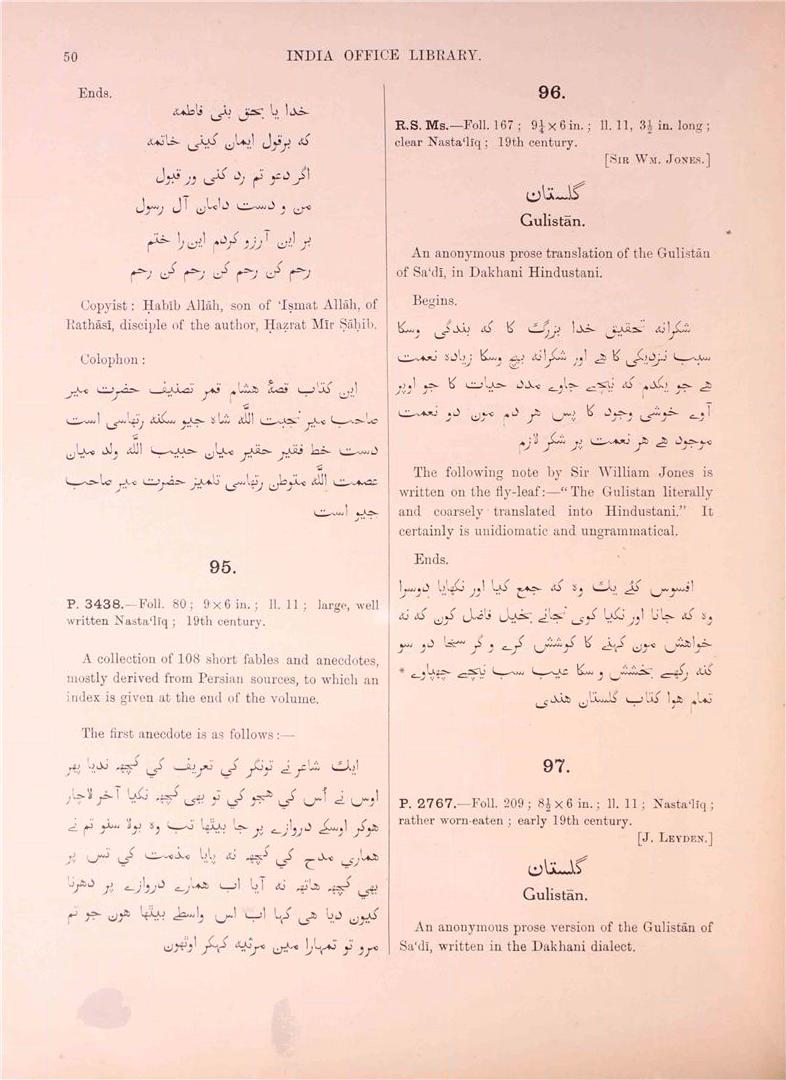 50
INDIA OFFICE LIBRARY.
Ends.
خدا یا بحق بنی فاطمہ
کہ برقول ایمان کینی خاتمہ
اگر دعو تم رد کنی ور قبول
من و دست دامان آل رسول
بر این آرزو کردم این را ختم
رحم کن رحم کن رحم کن رحم
Copyist: Ḥabīb Allāh, son of ‘Iṣmat Allāh, of
Rathāsī, disciple of the author, Ḥaẓrat Mīr Ṣāḥib.
Colophon:
این کتاب قصۂ هشام قمر تصنیف حضرت میر
صاحب میر نجبت اللّٰه شاہ جیو سکنہ رتهاسی است
دست خط فقیر حقیر میان حبیب اللّٰه ولد میان
عصمت اللّٰه متوطن رتهاسی تلمیز حضرت میر صاحب
جیو است
95.
P. 3438.—Foll. 80; 9 × 6 in.; ll. 11; large, well
written Nasta‘līq; 19th century.
A collection of 108 short fables and anecdotes,
mostly derived from Persian sources, to which an
index is given at the end of the volume.
The first anecdote is as follows:—
ایك شاعر نے تونگر کي تعریف کي کچهہ ندیا پهر
اوس نے اُس کي هجو کي تو بهی کچهہ نکیا آخر لاچار
هوکر اوسکے دروازے پر جا بیتها تب وہ بولا سنو تم نے
هماري مدح کي کچهہ نہ پایا مذمت کي تس پر
بهي کچهہ هاتهہ نہ آیا اب همارے دروازے پر دهرنا
کیون دیا هی کہا اب اس واسطے بیتها هون جو تم
مرو تو تمہارا مین مرثیہ کہکر اوتهون
96.
R.S. Ms.—Foll. 167; 9¼ × 6 in.; ll. 11, 3½ in. long;
clear Nasta‘līq; 19th century.
[Sir Wm. Jones.]
گلستان
Gulistān.
An anonymous prose translation of the Gulistān
of Sa‘dī, in Dakhani Hindustani.
Begins.
شکرانہ تحقیق خدا بزرگ کا کہ بندگی وسکا
سبب نزدیکی کا هے اور شکرانہ بیچ وسکا زیادہ نعمت
هے جو یکدم کہ نیچے جاوے مدد حیات کا جو اوپر
آوے خوشی وجود کا پس هر دم مون دو نعمت
موجود هے هر نعمت پر شکر لازم
The following note by Sir William Jones is
written on the fly-leaf:—“The Gulistan literally
and coarsely translated into Hindustani.” It
certainly is unidiomatic and ungrammatical.
Ends.
افسوس کئے یك وہ کہ جمع کیا اور نکهایا دوسرا
وہ کہ جانا اور نکیا کوی نجانے بخیل فاضل کون کہ نہ
خواهش مون کہنے کا کوشش کرے و گر سخا دو سو
گنہ رکهے بخشش و سکا عیب سب نیچے چهپاوے *
تمام هوا کتاب گلستان هندی
97.
P. 2767.—Foll. 209; 8½ × 6 in.; ll. 11; Nasta‘līq;
rather worn-eaten; early 19th century.
[J. Leyden.]
گلستان
Gulistān.
An anonymous prose version of the Gulistān of
Sa‘dī, written in the Dakhani dialect.